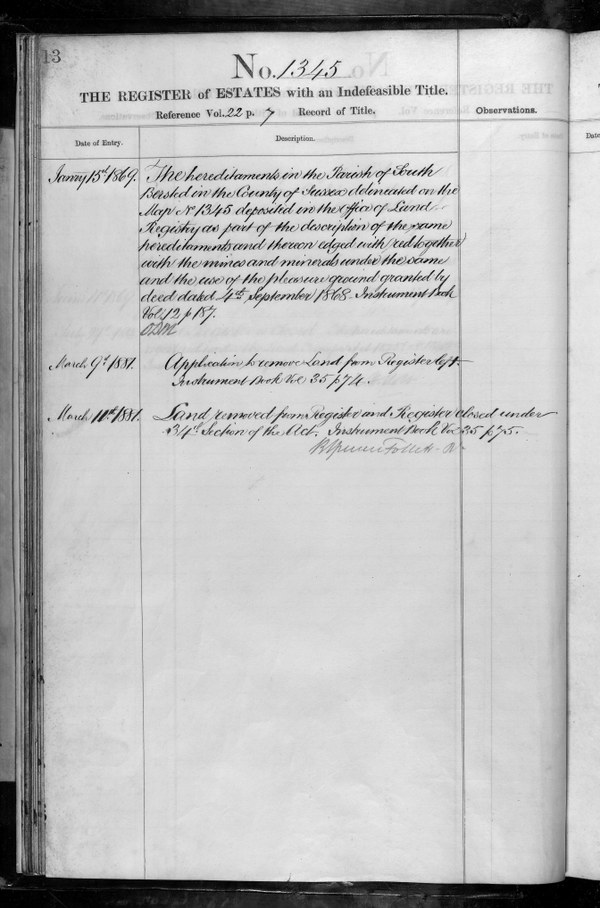 13
No. 1345
THE REGISTER of ESTATES with an Indefeasible Title.
Reference Vol. 22 p. 7 Record of Title.
Observations.
Date of Entry.
Description.
Janry 15th 1869. The hereditaments in the Parish of South
Bersted in the County of Sussex delineated on the
Map No 1345 deposited in the Office of Land
Registry as part of the description of the same
hereditaments and thereon edged with red together
with the mines and minerals under the same
and the use of the pleasure ground granted by
deed dated 4th September 1868. Instrument Book
Vol 12 p 187.
March 9th 1881. Application to remove Land from Register left.
Instrument Book Vol 35 p 74.
March 11th 1881. Land removed from Register and Register closed under
34th Section of the Act. Instrument Book Vol 35 p 75.
Follett